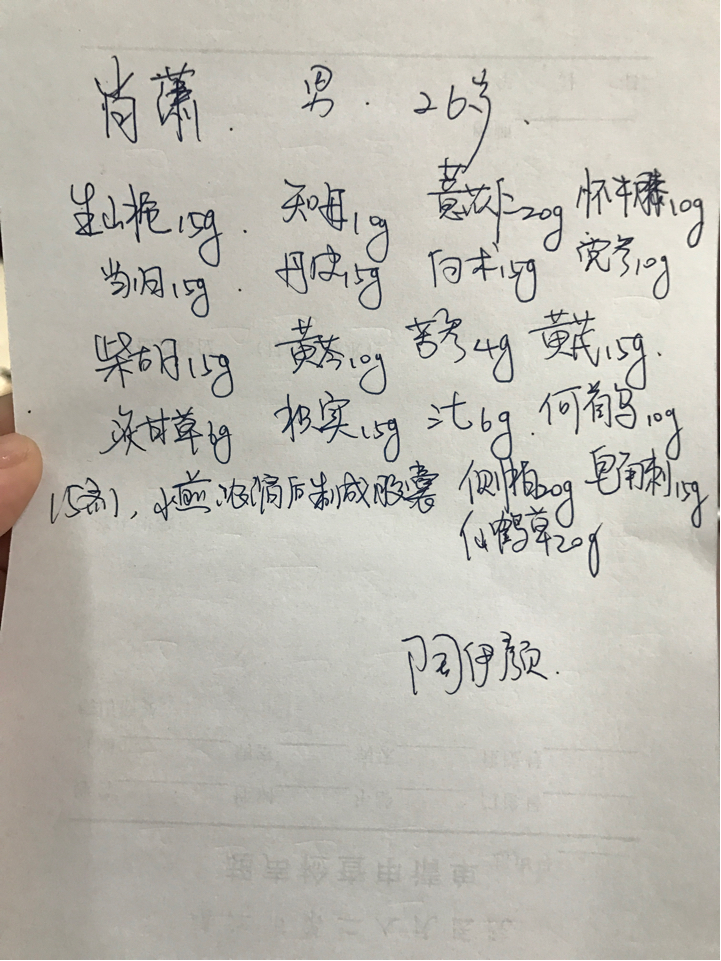 肖萧. 男. 26岁.
生山栀15g. 知母10g 薏苡仁20g 怀牛膝10g
当归15g. 丹皮15g 白术15g 党参10g
柴胡15g 黄芩10g 苦参4g 黄芪15g.
炙甘草6g 枳实15g 三七6g. 何首乌10g
15剂, 水煎浓缩后制成胶囊 侧柏20g 皂角刺15g
仙鹤草20g
阿伊颜.